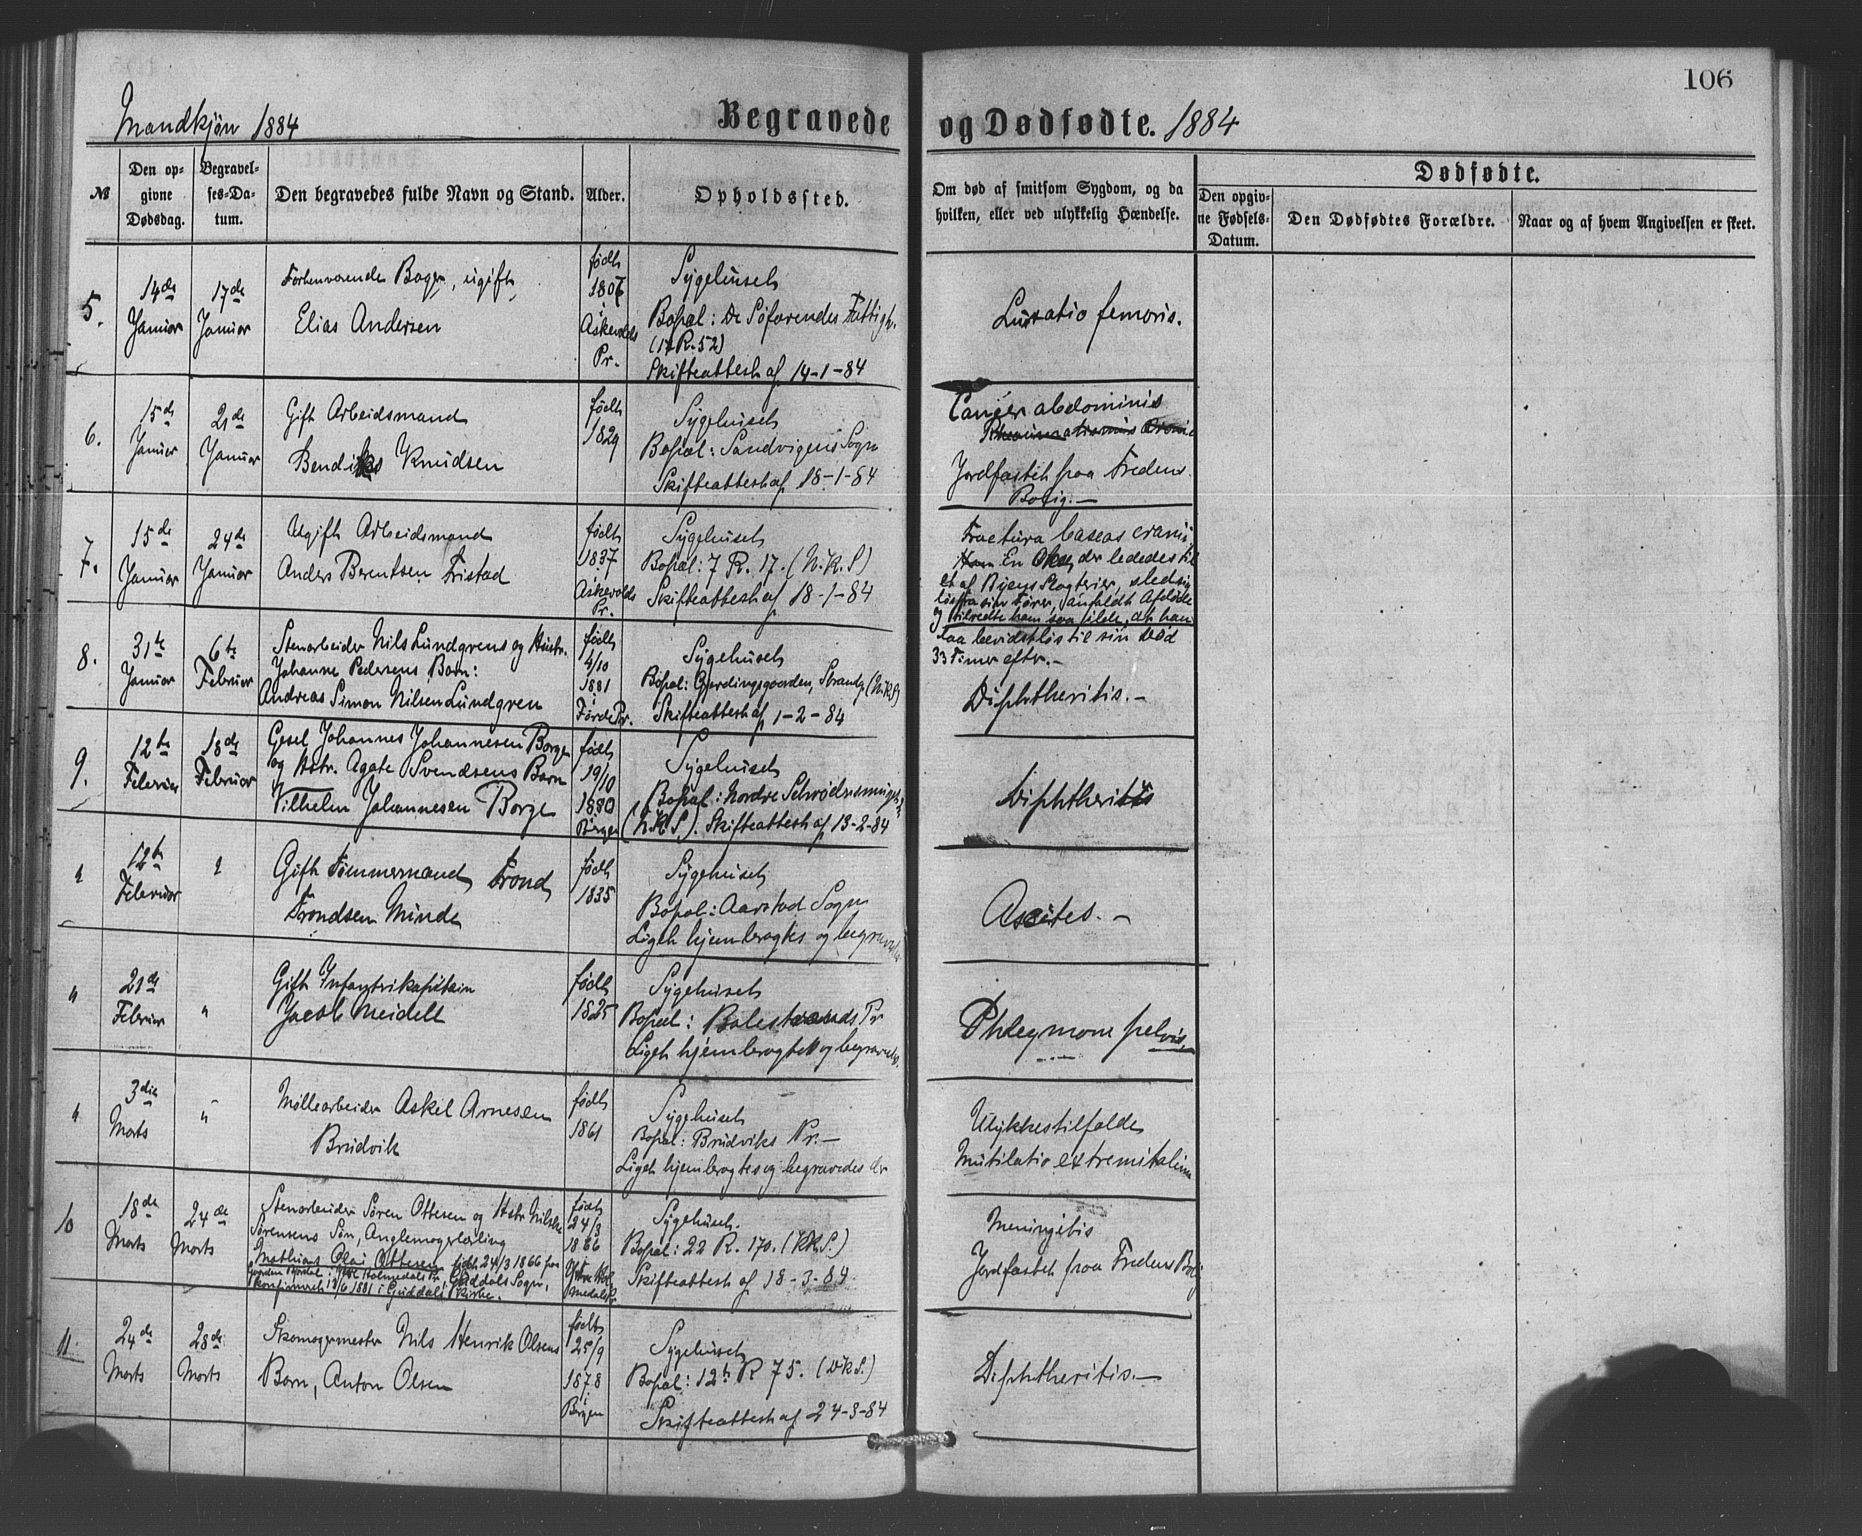 106
Mandkjøn 1884
Begravede og Dødfødte. 1884
№
Den opgivne Dødsdag.
Begravelses-Datum.
Den begravedes fulde Navn og Stand.
Alder.
Opholdssted.
Om død af smitsom Sygdom, og da hvilken, eller ved ulykkelig Hændelse.
Dødfødte.
Den opgivne Fødsels-Datum.
Den Dødfødtes Forældre.
Naar og af hvem Angivelsen er skeet.
5.
14de Januar
17de Januar
Forhenværende Bager, ugift,
Elias Andersen
født
1807
Askevolds
Pr.
Sygehuset
Bopæl: De Søfarendes Fattigh.
(17 R. 52)
Skifteattest af 14-1-84
Luxatio femoris.
6.
15de Januar
21de Januar
Gift Arbeidsmand
Bendiks Knudsen
født
1829
Sygehuset
Bopæl: Sandvigens Sogn
Skifteattest af 18-1-84
Cancer abdominis
Jordfæstet fra Fredens
Bolig.—
7.
15de Januar
24de Januar
Ugift Arbeidsmand
Anders Berentsen Tristad
født
1837
Askevolds
Pr.
Sygehuset
Bopæl: 7 R. 17. (N.K.S)
Skifteattest af 18-1-84
Fractura baseos cranii
En Oxe, der lededes til
et af Byens Slagterier, sled sig
løs fra sin Fører, anfaldt Afdøde
og tilredte ham saa ilde, at han
laa bevidstløs til sin Død
33 Timer efter.—
8.
31te Januar
6te Februar
Stenarbeider Nils Lundgrens og Hustr.
Johanne Pedersens Barn:
Andreas Simon Nilsen Lundgren
født
4/10
1881
Førde Pr.
Sygehuset
Bopæl: Gjerdingsgaarden, Strandg (N.K.S)
Skifteattest af 1-2-84
Diphtheritis.—
9.
12te Februar
18de Februar
Gesel Johannes Johannesen Borge
og Hstr. Agate Svendsens Barn
Vilhelm Johannesen Borge
født
19/10
1880
Bergen
Sygehuset
Bopæl: Nordre Schrødersmuget
(N.K.S). Skifteattest af 13-2-84
Diphtheritis
"
12te Februar
"
Gift Tømmermand Trond
Trondsen Minde
født
1835
Sygehuset
Bopæl: Aarstad Sogn
Liget hjembragtes og begravedes
Ascites.—
"
21de Februar
"
Gift Infanterikapitain
Jacob Meidell
født
1825
Sygehuset
Bopæl: Balestrands Pr
Liget hjembragtes og begravedes
Phlegmone pelvis.
"
3die Marts
"
Møllearbeider Askel Arnesen
Brudvik
født
1861
Sygehuset
Bopæl: Brudviks Pr.—
Liget hjembragtes og begravedes der
Ulykkestilfælde
Mutilatio extremitatum
10
18de Marts
24de Marts
Stenarbeider Søren Ottesen og Hstr Nilske
Sørensens Søn, Anglemagerlærling
Mathias Olai Ottesen født 24/3 1866 paa
Gaarden i Ytre Holmedals Pr, Guddals Sogn,
konfirmeret 1881 i Guddals Kirke.
født
24/3
1866
Ytre Hol
medals Pr.
Sygehuset.
Bopæl: 22 R. 170. (K.K.S.)
Skifteattest af 18-3-84
Meningitis
Jordfæstet fra Fredens Bolig
11.
24de Marts
28de Marts
Skomagermester Nils Henrik Olsens
Barn, Anton Olsen
født
25/9
1878
Bergen
Sygehuset
Bopæl: 12te R 75. (D.K.S.)
Skifteattest af 24-3-84
Diphtheritis.—